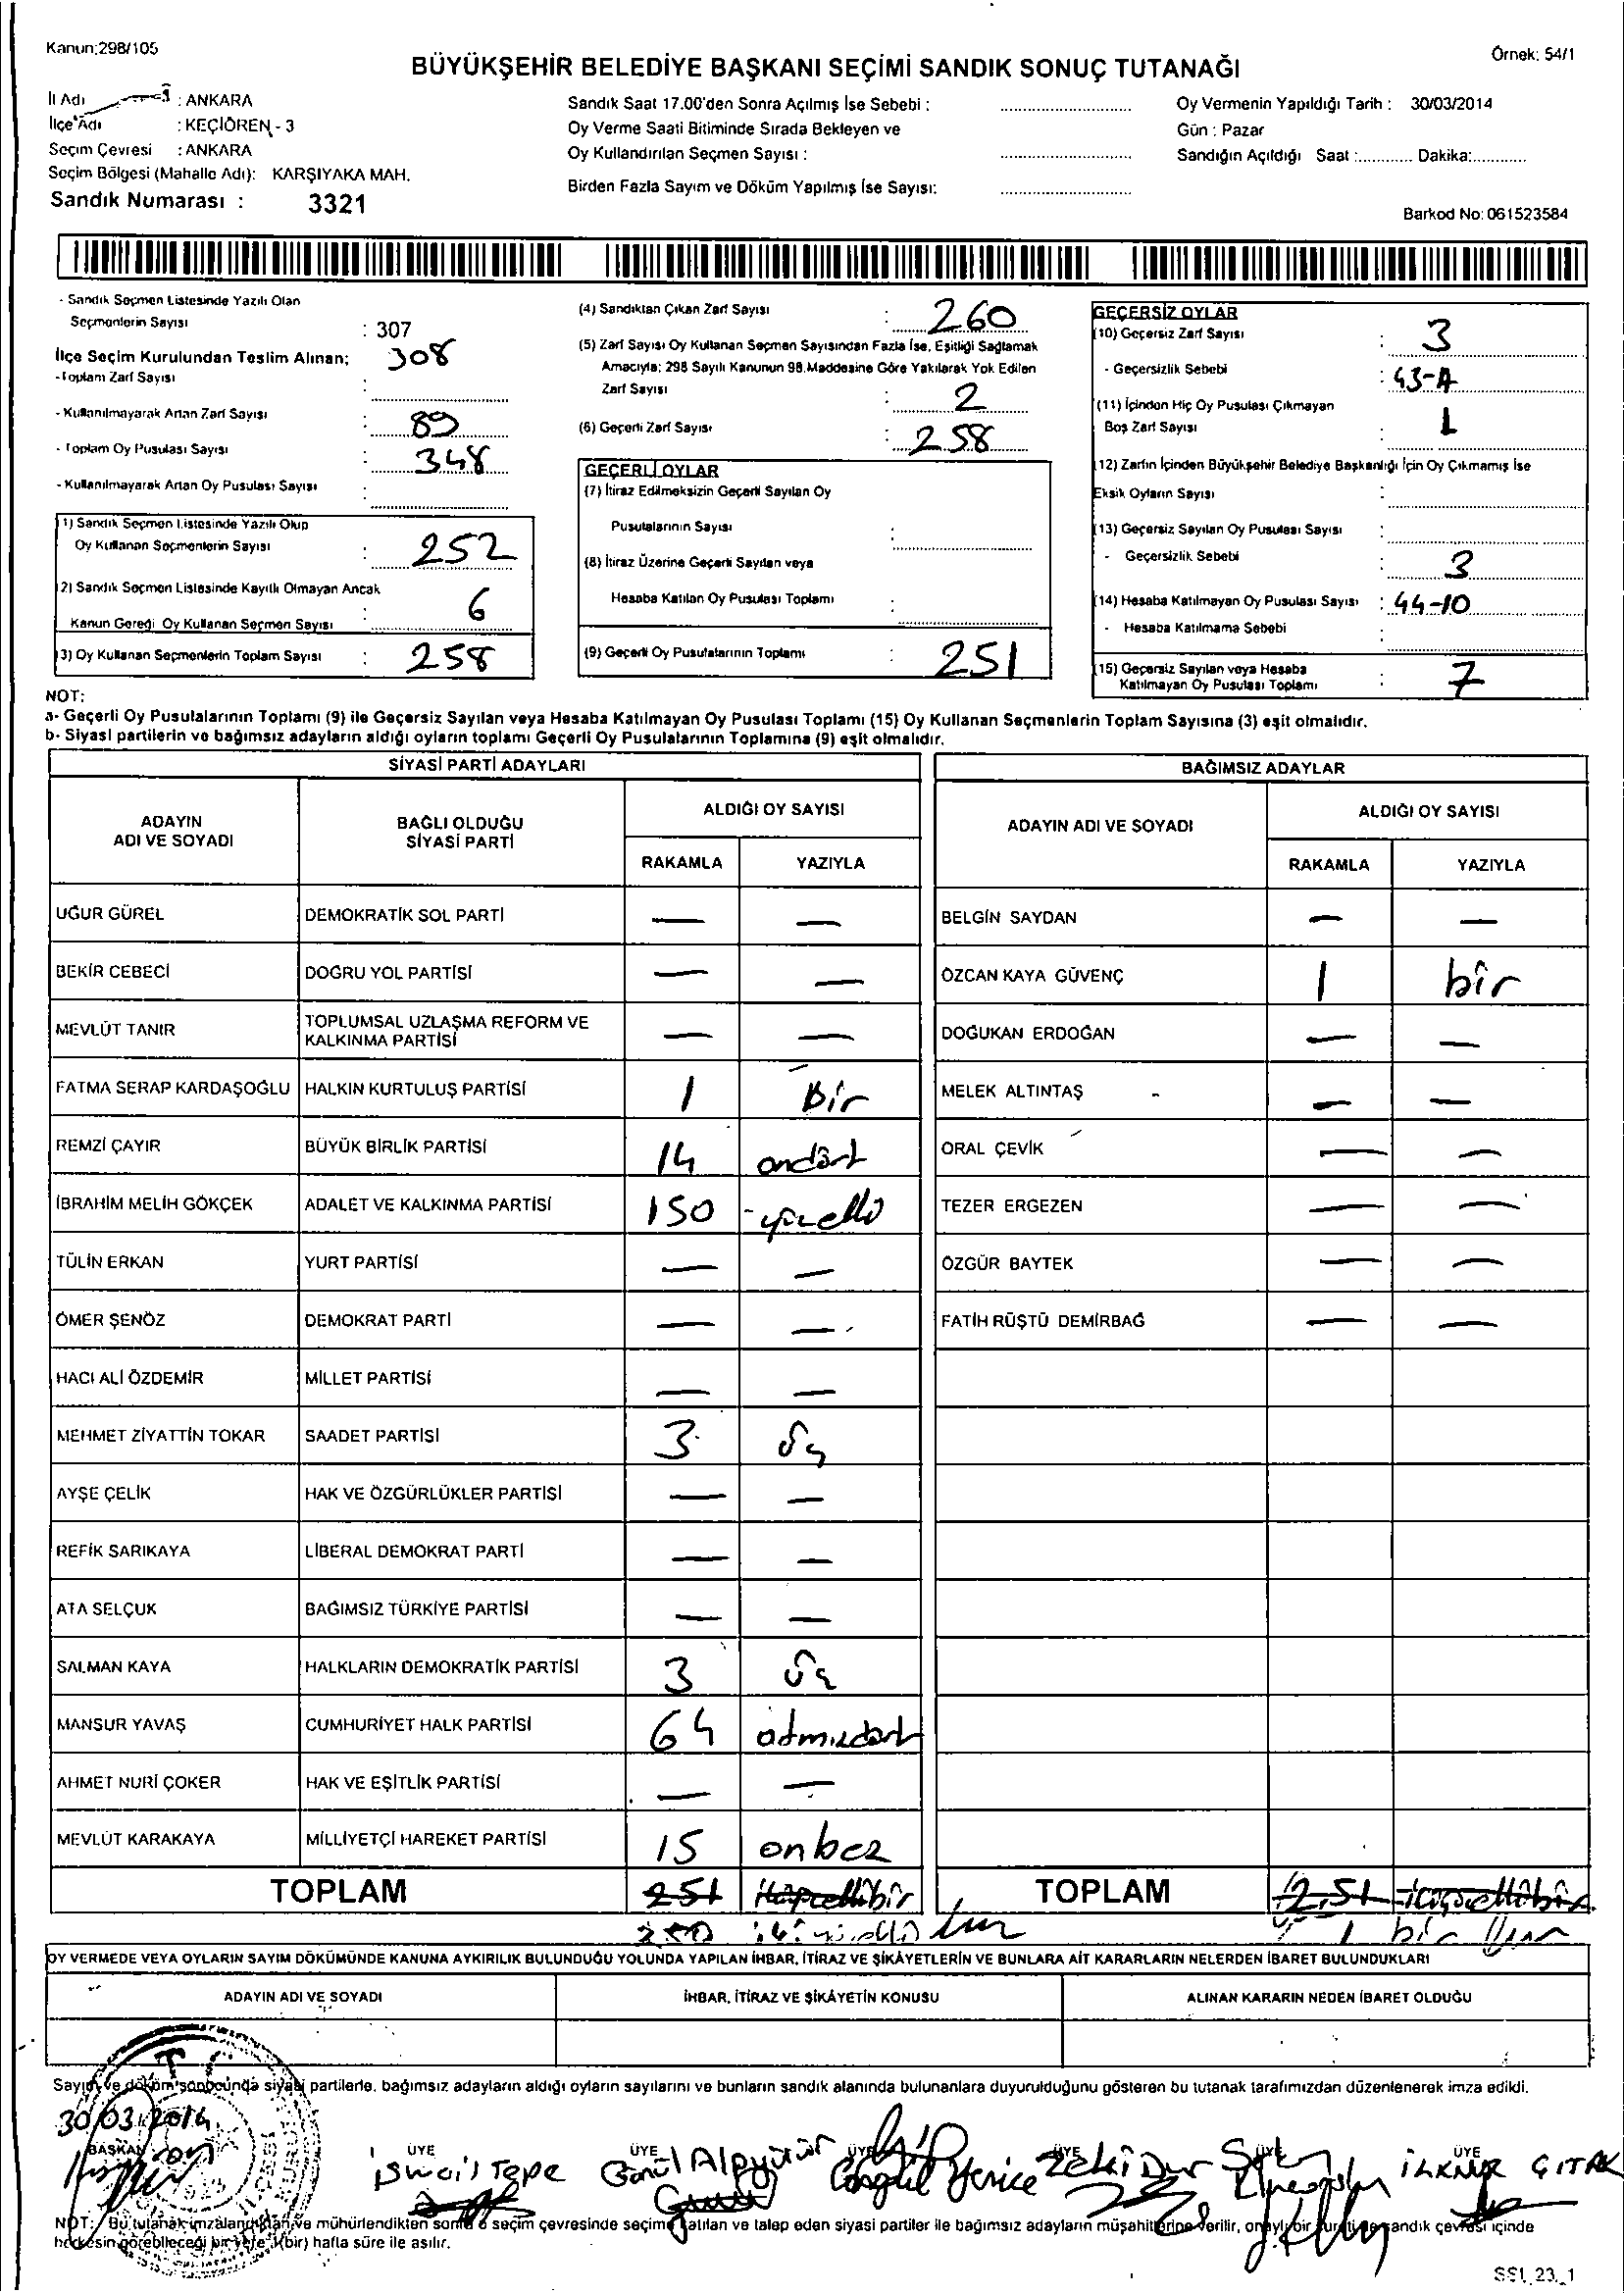 Kanun:298/105
Örnek: 54/1
BÜYÜKŞEHİR BELEDİYE BAŞKANI SEÇİMİ SANDIK SONUÇ TUTANAĞI
İl Adı : ANKARA
İlçe Adı : KEÇİÖREN - 3
Seçim Çevresi : ANKARA
Seçim Bölgesi (Mahalle Adı): KARŞIYAKA MAH.
Sandık Numarası : 3321
Sandık Saat 17.00'den Sonra Açılmış İse Sebebi :
Oy Verme Saati Bitiminde Sırada Bekleyen ve
Oy Kullandırılan Seçmen Sayısı :
Birden Fazla Sayım ve Döküm Yapılmış İse Sayısı:
Oy Vermenin Yapıldığı Tarih : 30/03/2014
Gün : Pazar
Sandığın Açıldığı Saat :............ Dakika:............
Barkod No: 061523584
- Sandık Seçmen Listesinde Yazılı Olan
Seçmenlerin Sayısı : 307
İlçe Seçim Kurulundan Teslim Alınan; 308
-Toplam Zarf Sayısı :
- Kullanılmayarak Artan Zarf Sayısı : 89
- Toplam Oy Pusulası Sayısı : 348
- Kullanılmayarak Artan Oy Pusulası Sayısı :
1) Sandık Seçmen Listesinde Yazılı Olup
Oy Kullanan Seçmenlerin Sayısı : 252
2) Sandık Seçmen Listesinde Kayıtlı Olmayan Ancak
Kanun Gereği Oy Kullanan Seçmen Sayısı 6
3) Oy Kullanan Seçmenlerin Toplam Sayısı : 258
(4) Sandıktan Çıkan Zarf Sayısı : 260
(5) Zarf Sayısı Oy Kullanan Seçmen Sayısından Fazla İse, Eşitliği Sağlamak
Amacıyla; 298 Sayılı Kanunun 98.Maddesine Göre Yakılarak Yok Edilen
Zarf Sayısı : 2
(6) Geçerli Zarf Sayısı : 258
GEÇERLİ OYLAR
(7) İtiraz Edilmeksizin Geçerli Sayılan Oy
Pusulalarının Sayısı :
(8) İtiraz Üzerine Geçerli Sayılan veya
Hesaba Katılan Oy Pusulası Toplamı :
(9) Geçerli Oy Pusulalarının Toplamı : 251
GEÇERSİZ OYLAR
(10) Geçersiz Zarf Sayısı : 3
- Geçersizlik Sebebi : 43-A
(11) İçinden Hiç Oy Pusulası Çıkmayan
Boş Zarf Sayısı : 1
(12) Zarfın İçinden Büyükşehir Belediye Başkanlığı İçin Oy Çıkmamış İse
Eksik Oyların Sayısı :
(13) Geçersiz Sayılan Oy Pusulası Sayısı :
- Geçersizlik Sebebi : 3
(14) Hesaba Katılmayan Oy Pusulası Sayısı : 44-10
- Hesaba Katılmama Sebebi :
(15) Geçersiz Sayılan veya Hesaba
Katılmayan Oy Pusulası Toplamı : 7
NOT:
a- Geçerli Oy Pusulalarının Toplamı (9) ile Geçersiz Sayılan veya Hesaba Katılmayan Oy Pusulası Toplamı (15) Oy Kullanan Seçmenlerin Toplam Sayısına (3) eşit olmalıdır.
b- Siyasi partilerin ve bağımsız adayların aldığı oyların toplamı Geçerli Oy Pusulalarının Toplamına (9) eşit olmalıdır.
SİYASİ PARTİ ADAYLARI
ADAYIN ADI VE SOYADI
BAĞLI OLDUĞU SİYASİ PARTİ
ALDIĞI OY SAYISI
RAKAMLA YAZIYLA
UĞUR GÜREL DEMOKRATİK SOL PARTİ — —
BEKİR CEBECİ DOĞRU YOL PARTİSİ — —
MEVLÜT TANIR TOPLUMSAL UZLAŞMA REFORM VE KALKINMA PARTİSİ — —
FATMA SERAP KARDAŞOĞLU HALKIN KURTULUŞ PARTİSİ 1 Bir
REMZİ ÇAYIR BÜYÜK BİRLİK PARTİSİ 14 ondört
İBRAHİM MELİH GÖKÇEK ADALET VE KALKINMA PARTİSİ 150 yüzelli
TÜLİN ERKAN YURT PARTİSİ — —
ÖMER ŞENÖZ DEMOKRAT PARTİ — —
HACI ALİ ÖZDEMİR MİLLET PARTİSİ — —
MEHMET ZİYATTİN TOKAR SAADET PARTİSİ 3 üç
AYŞE ÇELİK HAK VE ÖZGÜRLÜKLER PARTİSİ — —
REFİK SARIKAYA LİBERAL DEMOKRAT PARTİ — —
ATA SELÇUK BAĞIMSIZ TÜRKİYE PARTİSİ — —
SALMAN KAYA HALKLARIN DEMOKRATİK PARTİSİ 3 üç
MANSUR YAVAŞ CUMHURİYET HALK PARTİSİ 64 atmışdört
AHMET NURİ ÇOKER HAK VE EŞİTLİK PARTİSİ — —
MEVLÜT KARAKAYA MİLLİYETÇİ HAREKET PARTİSİ 15 onbeş
TOPLAM 251 ikiyüzellibir
250 ikiyüzelli
BAĞIMSIZ ADAYLAR
ADAYIN ADI VE SOYADI
ALDIĞI OY SAYISI
RAKAMLA YAZIYLA
BELGİN SAYDAN — —
ÖZCAN KAYA GÜVENÇ 1 bir
DOĞUKAN ERDOĞAN — —
MELEK ALTINTAŞ — —
ORAL ÇEVİK — —
TEZER ERGEZEN — —
ÖZGÜR BAYTEK — —
FATİH RÜŞTÜ DEMİRBAĞ — —
TOPLAM 251 ikiyüzellibir
1 bir
OY VERMEDE VEYA OYLARIN SAYIM DÖKÜMÜNDE KANUNA AYKIRILIK BULUNDUĞU YOLUNDA YAPILAN İHBAR, İTİRAZ VE ŞİKÂYETLERİN VE BUNLARA AİT KARARLARIN NELERDEN İBARET BULUNDUKLARI
ADAYIN ADI VE SOYADI İHBAR, İTİRAZ VE ŞİKÂYETİN KONUSU ALINAN KARARIN NEDEN İBARET OLDUĞU
Sayım ve döküm sonucunda siyasi partilerle, bağımsız adayların aldığı oyların sayılarını ve bunların sandık alanında bulunanlara duyurulduğunu gösteren bu tutanak tarafımızdan düzenlenerek imza edildi.
30/03/2014
BAŞKAN ÜYE ÜYE ÜYE ÜYE ÜYE ÜYE
ismail Tepe Gönül Songül Yenice Zeki Dur İLKNUR ÇITAK
NOT: Bu tutanak imzalandıktan ve mühürlendikten sonra o seçim çevresinde seçime katılan ve talep eden siyasi partiler ile bağımsız adayların müşahitlerine verilir, onaylı bir sureti de sandık çevresi içinde
herkesin görebileceği bir yere 1(bir) hafta süre ile asılır.
SSt_23_1